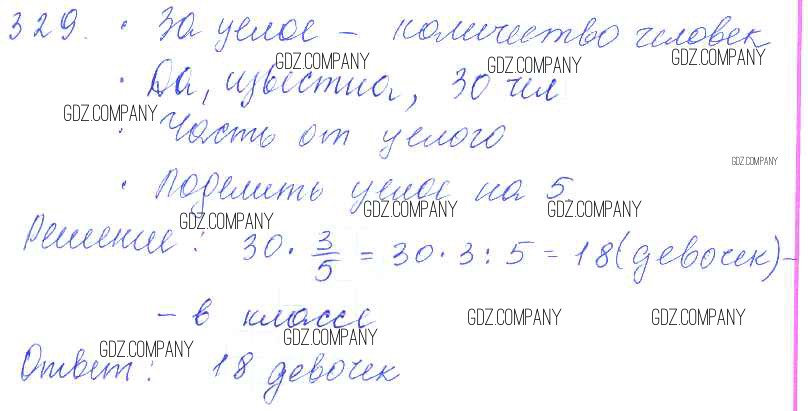 329. • За целое – количество человек
GDZ.COMPANY GDZ.COMPANY GDZ.COMPANY
• Да, известна, 30 чел
GDZ.COMPANY
• Часть от целого
GDZ.COMPANY
• Поделить целое на 5.
GDZ.COMPANY GDZ.COMPANY GDZ.COMPANY
Решение: 30 · 3/5 = 30 · 3 : 5 = 18 (девочек) –
– в классе
GDZ.COMPANY GDZ.COMPANY GDZ.COMPANY GDZ.COMPANY
Ответ: 18 девочек